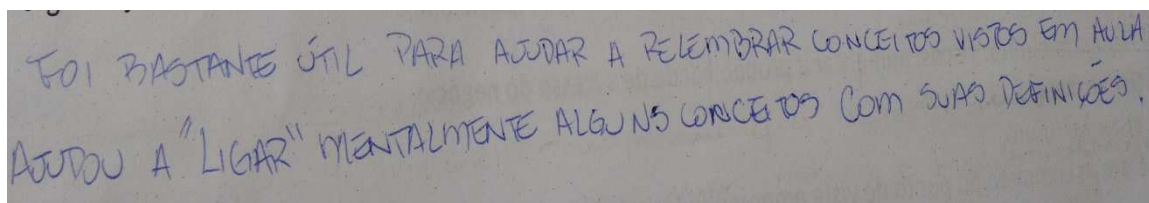 FOI BASTANTE ÚTIL PARA AJUDAR A RELEMBRAR CONCEITOS VISTOS EM AULA
AJUDOU A "LIGAR" MENTALMENTE ALGUNS CONCEITOS COM SUAS DEFINIÇÕES.